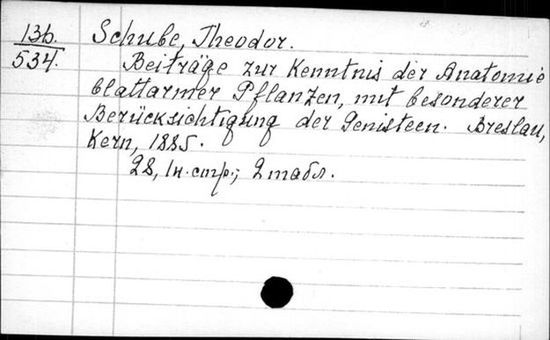 13b.
534.
Schube, Theodor.
Beiträge zur Kenntnis der Anatomie
blattarmer Pflanzen, mit besonderer
Berücksichtigung der Genisteen. Breslau,
Kern, 1885.
28, 1н. стр.; 2 табл.